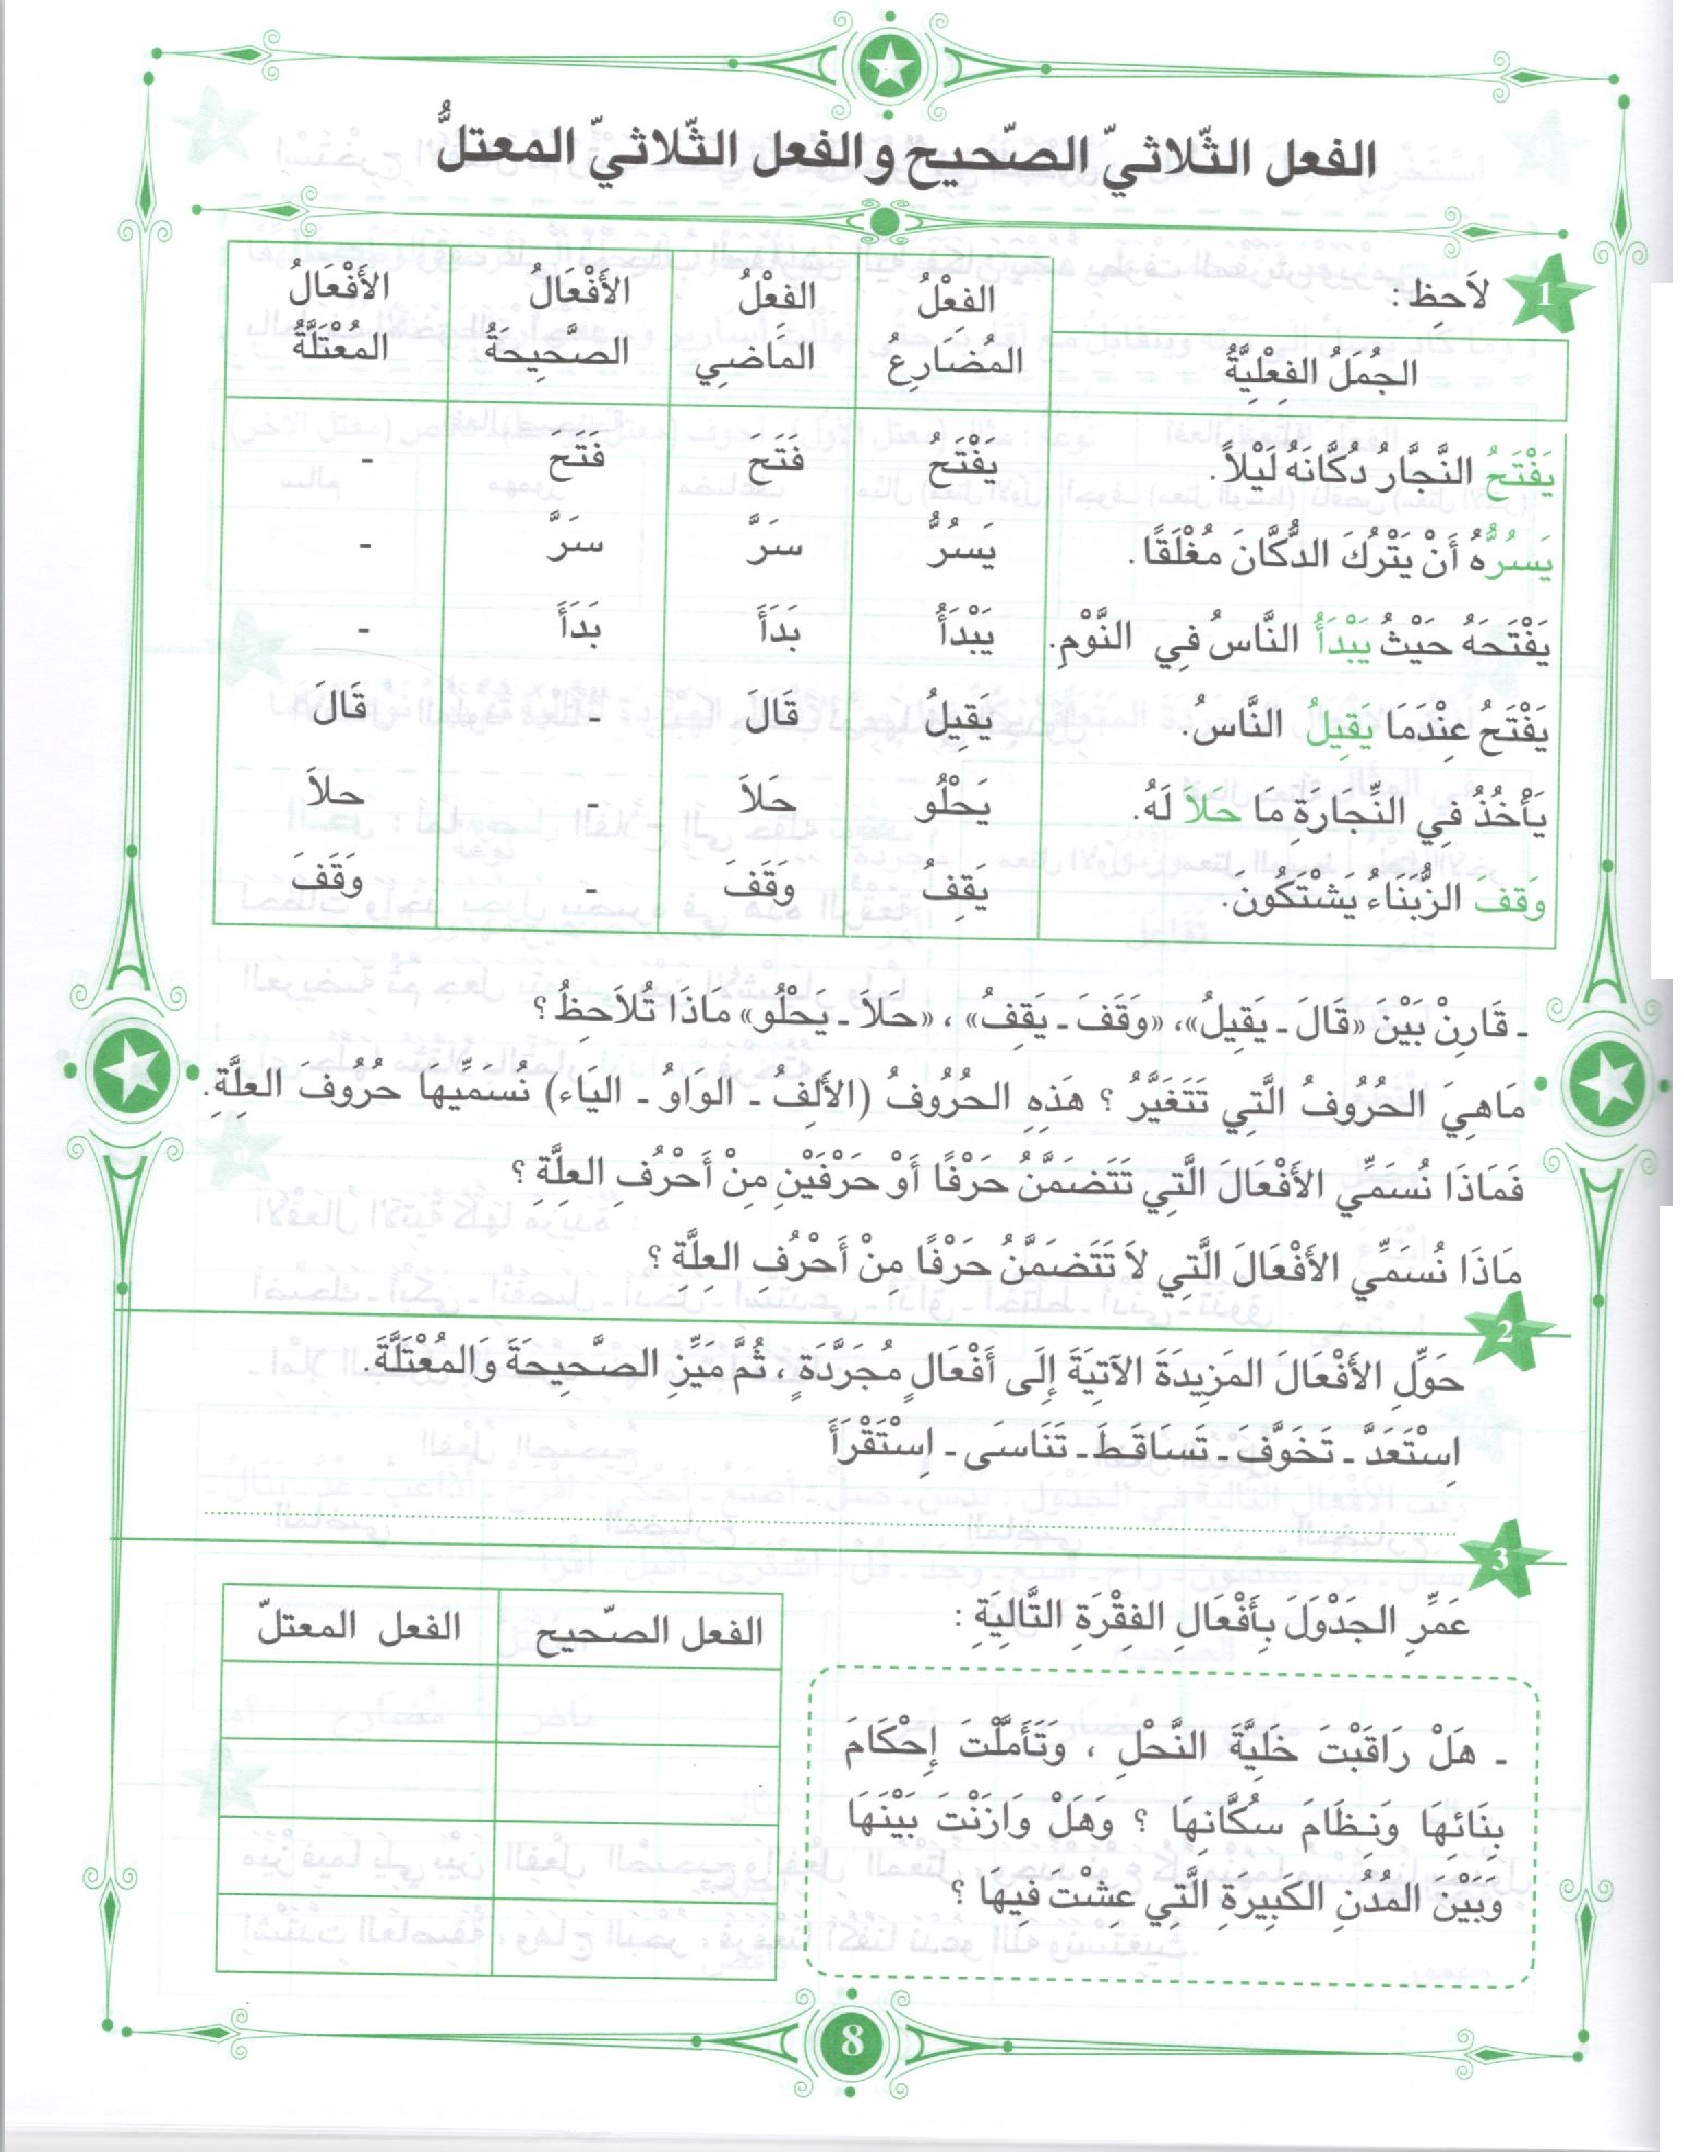 الفعل الثّلاثيّ الصّحيح والفعل الثّلاثيّ المعتلُّ
1 لاَحِظِ :
الجُمَلُ الفِعْلِيَّةُ | الفِعْلُ المُضَارِعُ | الفِعْلُ المَاضِي | الأَفْعَالُ الصَّحِيحَةُ | الأَفْعَالُ المُعْتَلَّةُ
يَفْتَحُ النَّجَّارُ دُكَّانَهُ لَيْلاً. | يَفْتَحُ | فَتَحَ | فَتَحَ | -
يَسُرُّهُ أَنْ يَتْرُكَ الدُّكَّانَ مُغْلَقًا. | يَسُرُّ | سَرَّ | سَرَّ | -
يَفْتَحَهُ حَيْثُ يَبْدَأُ النَّاسُ فِي النَّوْمِ. | يَبْدَأُ | بَدَأَ | بَدَأَ | -
يَفْتَحُ عِنْدَمَا يَقِيلُ النَّاسُ. | يَقِيلُ | قَالَ | - | قَالَ
يَأْخُذُ فِي النِّجَارَةِ مَا حَلاَ لَهُ. | يَحْلُو | حَلاَ | - | حلاَ
وَقَفَ الزُّبَنَاءُ يَشْتَكُونَ. | يَقِفُ | وَقَفَ | - | وَقَفَ
ـ قَارِنْ بَيْنَ «قَالَ ـ يَقِيلُ»، «وَقَفَ ـ يَقِفُ» ، «حَلاَ ـ يَحْلُو» مَاذَا تُلاَحِظُ ؟
مَاهِيَ الحُرُوفُ الَّتِي تَتَغَيَّرُ ؟ هَذِهِ الحُرُوفُ (الأَلِفُ ـ الوَاوُ ـ اليَاء) نُسَمِّيهَا حُرُوفَ العِلَّةِ.
فَمَاذَا نُسَمِّي الأَفْعَالَ الَّتِي تَتَضَمَّنُ حَرْفًا أَوْ حَرْفَيْنِ مِنْ أَحْرُفِ العِلَّةِ ؟
مَاذَا نُسَمِّي الأَفْعَالَ الَّتِي لاَ تَتَضَمَّنُ حَرْفًا مِنْ أَحْرُفِ العِلَّةِ ؟
2
حَوِّلِ الأَفْعَالَ المَزِيدَةَ الآتِيَةَ إِلَى أَفْعَالٍ مُجَرَّدَةٍ ، ثُمَّ مَيِّزِ الصَّحِيحَةَ وَالمُعْتَلَّةَ.
اِسْتَعَدَّ ـ تَخَوَّفَ ـ تَسَاقَطَ ـ تَنَاسَى ـ اِسْتَقْرَأَ
3
عَمِّرِ الجَدْوَلَ بِأَفْعَالِ الفِقْرَةِ التَّالِيَةِ :
الفعل الصّحيح | الفعل المعتلّ
ـ هَلْ رَاقَبْتَ خَلِيَّةَ النَّحْلِ ، وَتَأَمَّلْتَ إِحْكَامَ
بِنَائِهَا وَنِظَامَ سكَّانِهَا ؟ وَهَلْ وَازَنْتَ بَيْنَهَا
وَبَيْنَ المُدُنِ الكَبِيرَةِ الَّتِي عِشْتَ فِيهَا ؟
8